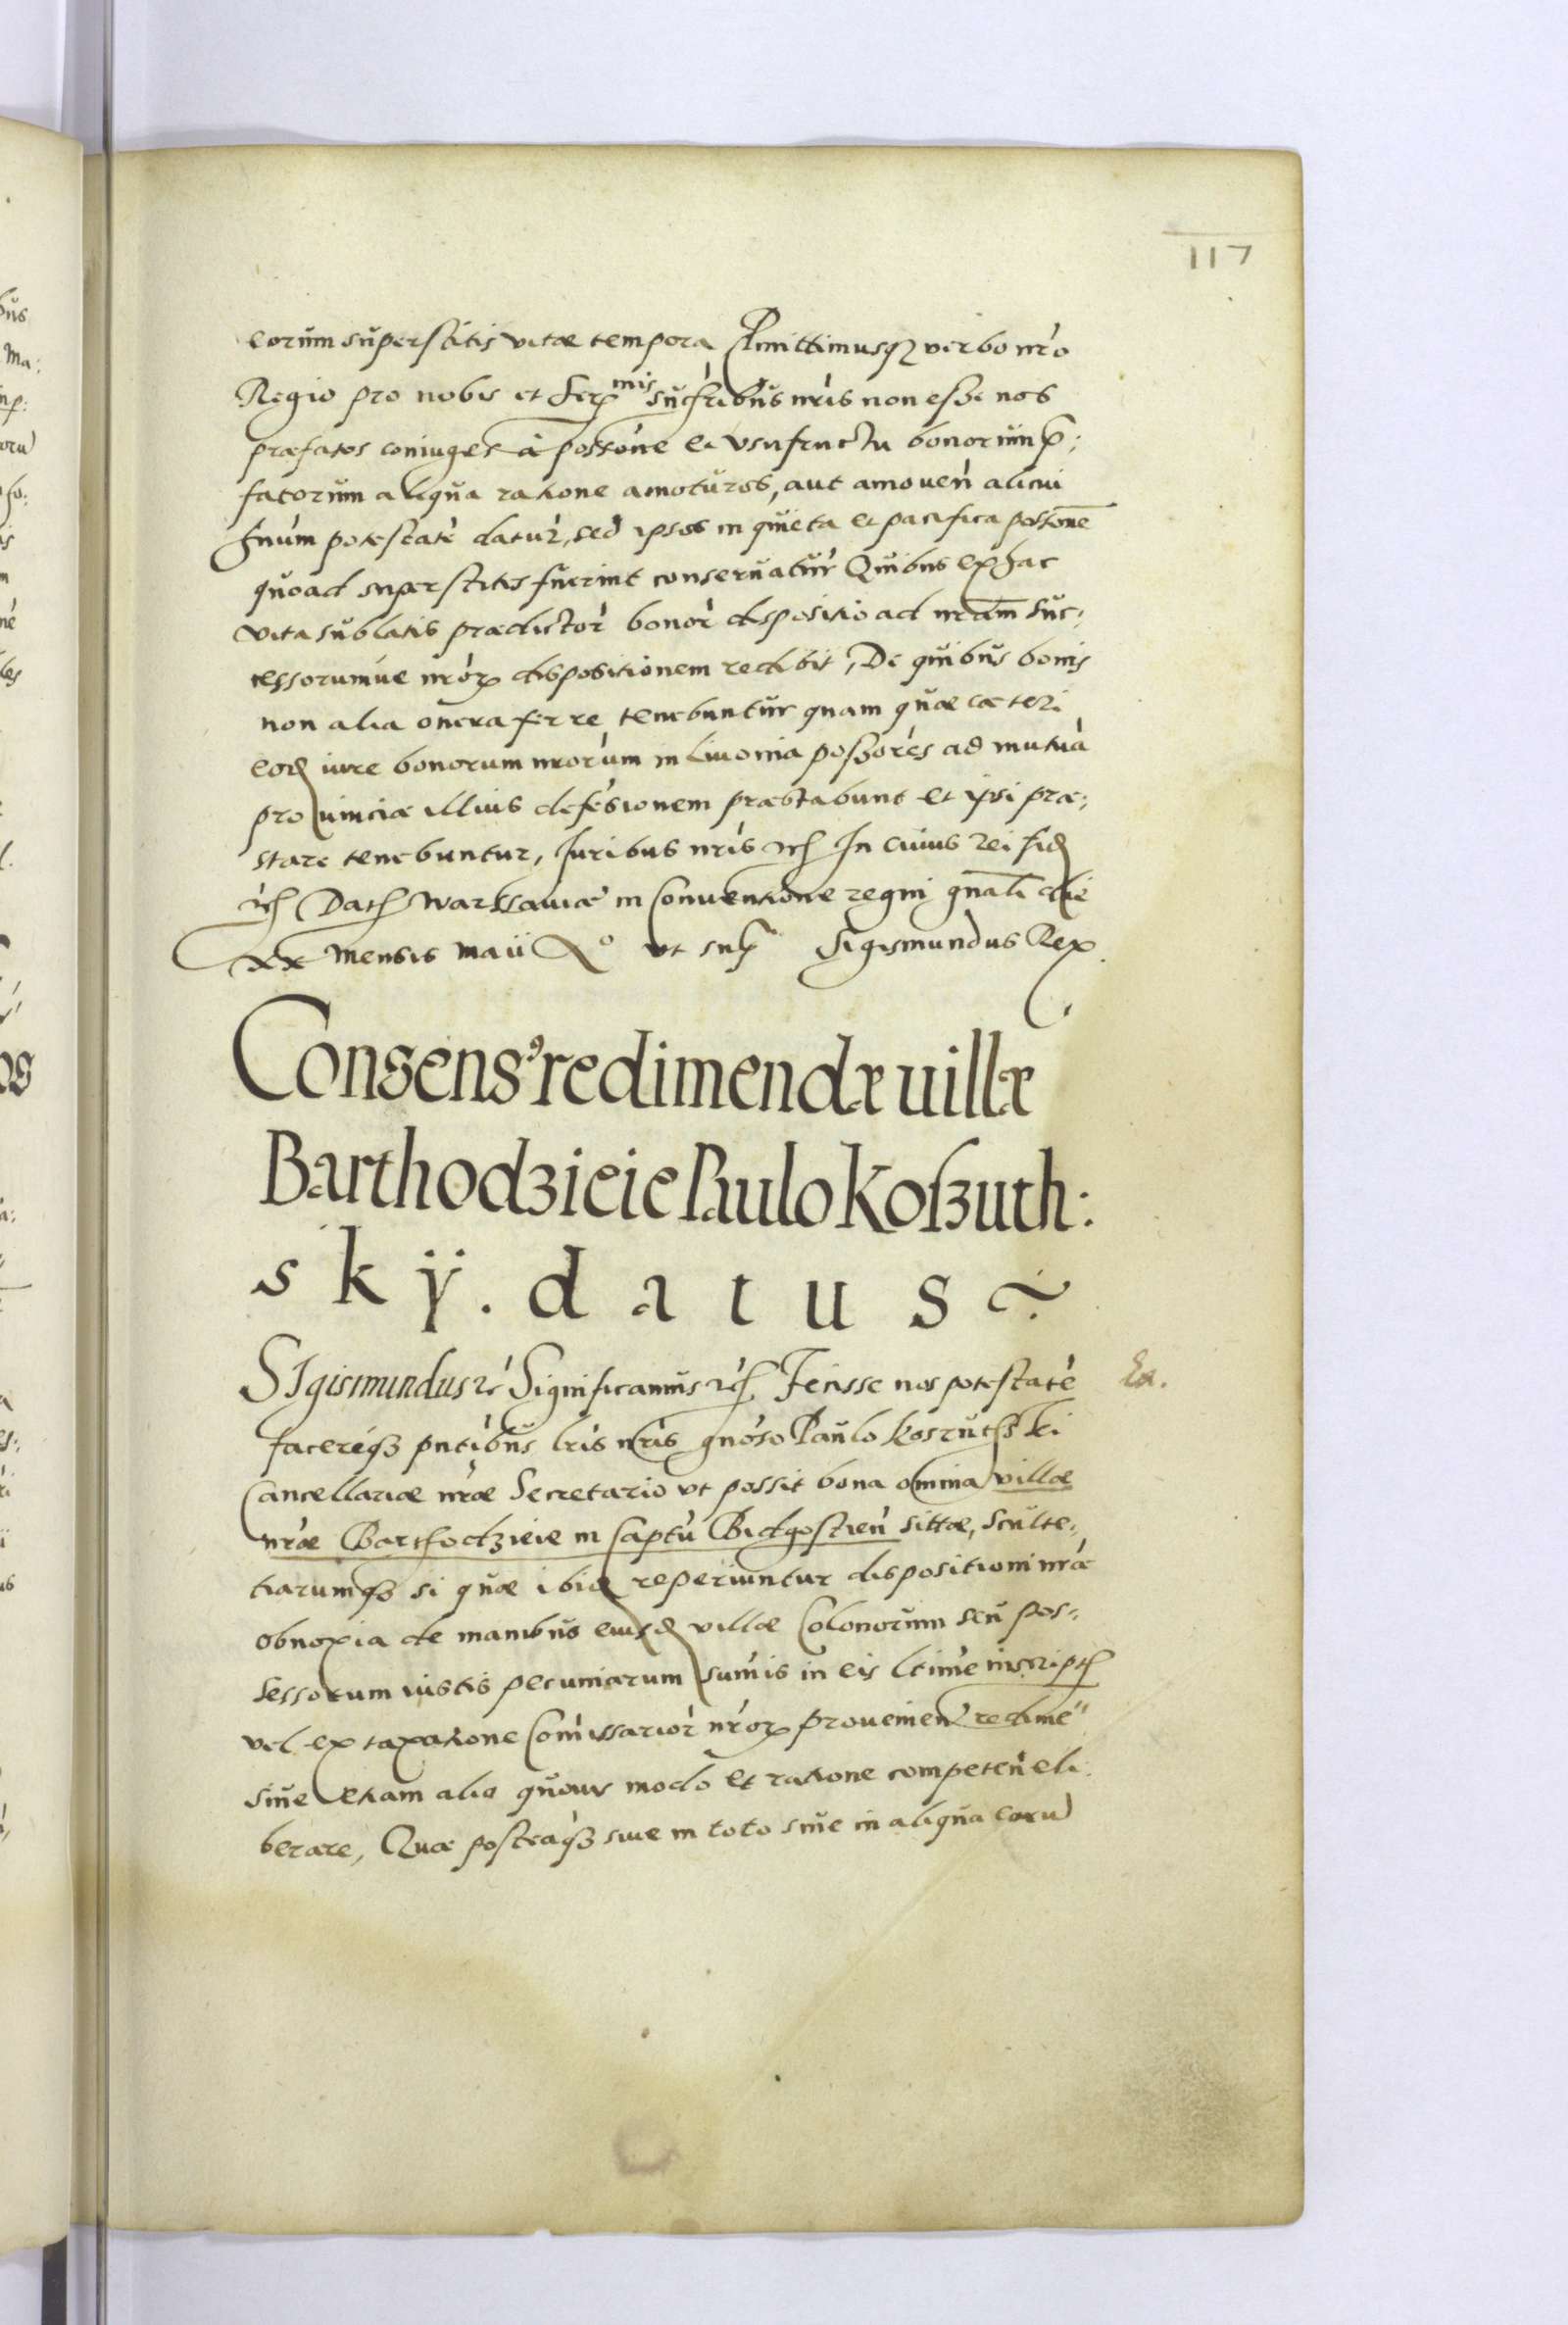 117
eorum superstitis vitae tempora, Pmittimusq3 verbo nro
Regio pro nobis et Ser mis sucribus nris non esse nos
praefatos coniuges à possone et vsufructu bonorum p:
fatorum aliqua ratione amoturos, aut amouen alicui
hnum potestate datur, sed ipsos in quieta et pacifica possone
quoad superstites fuerint conseruatur Quibus ex hac
vita sublatis praedictor bonor dispositio ad nram suc:
cessorumue nror dispositionem redibit, De quibus bonis
non alia onera ferre tenebuntur quam quae caeteri
eod iure bonorum nrorum in Liuonia possores ad mutua
prouinciae illius defesionem praestabunt et ipsi prae:
stare tenebuntur, Iuribus nris rc In cuius rei fid
rc Dat Warssauiae in Conuentione regni gnali die
xx mensis Maii Ao ut sup Sigismundus Rex.
Consens9 redimendae uillae
Barthodzieie Paulo Koszuth:
skÿ. datus
SIgismundus rc Significamus rc Fecisse nos potestate
facereq3 pntibus lris nris gnoso Paulo Koszutski
Cancellariae nrae Secretario vt possit bona omnia villae
nrae Barthodzieie in Captu Bidgostien sittae, Sculte:
tiarumq3 si quae ibid reperiuntur dispositioni nrae
obnoxia de manibus eiusd villae Colonorum seu pos:
sessorum iustis pecuniarum sumis in eis ltime inscript
vel ex taxatione Comissarior nror prouenien redime
siue etiam alio quouis modo et ratione competen eli
berare, Quae posteaq3 siue in toto siue in aliqua eoru
Ex.